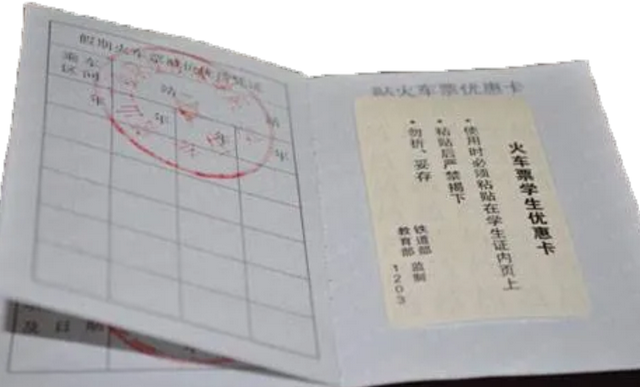 假期火车票减价优待凭证
乘车
区间
站—
站
年
年
年
年
及日期
贴火车票优惠卡
火车票学生优惠卡
• 使用时必须粘贴在学生证内页上
• 粘贴后严禁揭下
• 勿折、妥存
铁道部
教育部
监制
1203